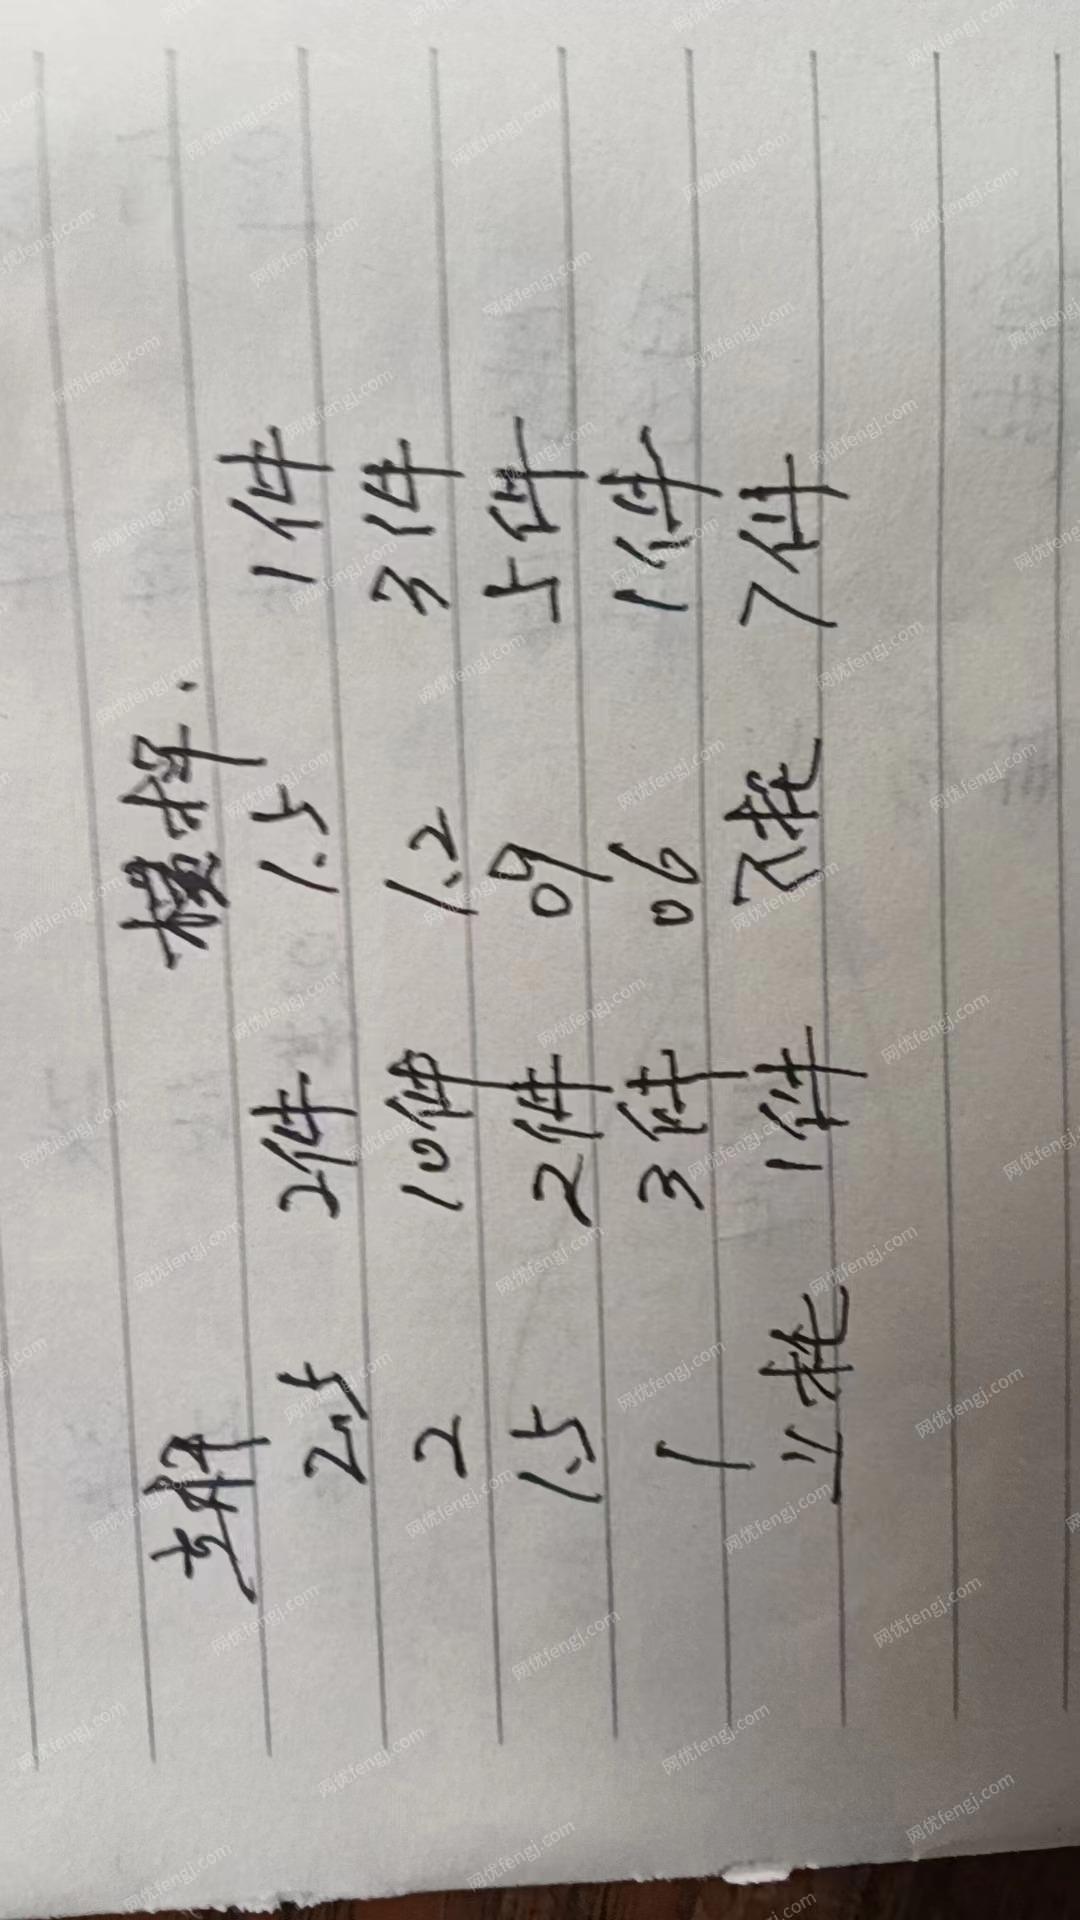 立杆 横杆.
2.5 2件 1.5 1件
2 10件 1.2 3件
1.5 2件 09 5件
1 3件 06 1件
上托 1件 下托 7件
网优fengj.com